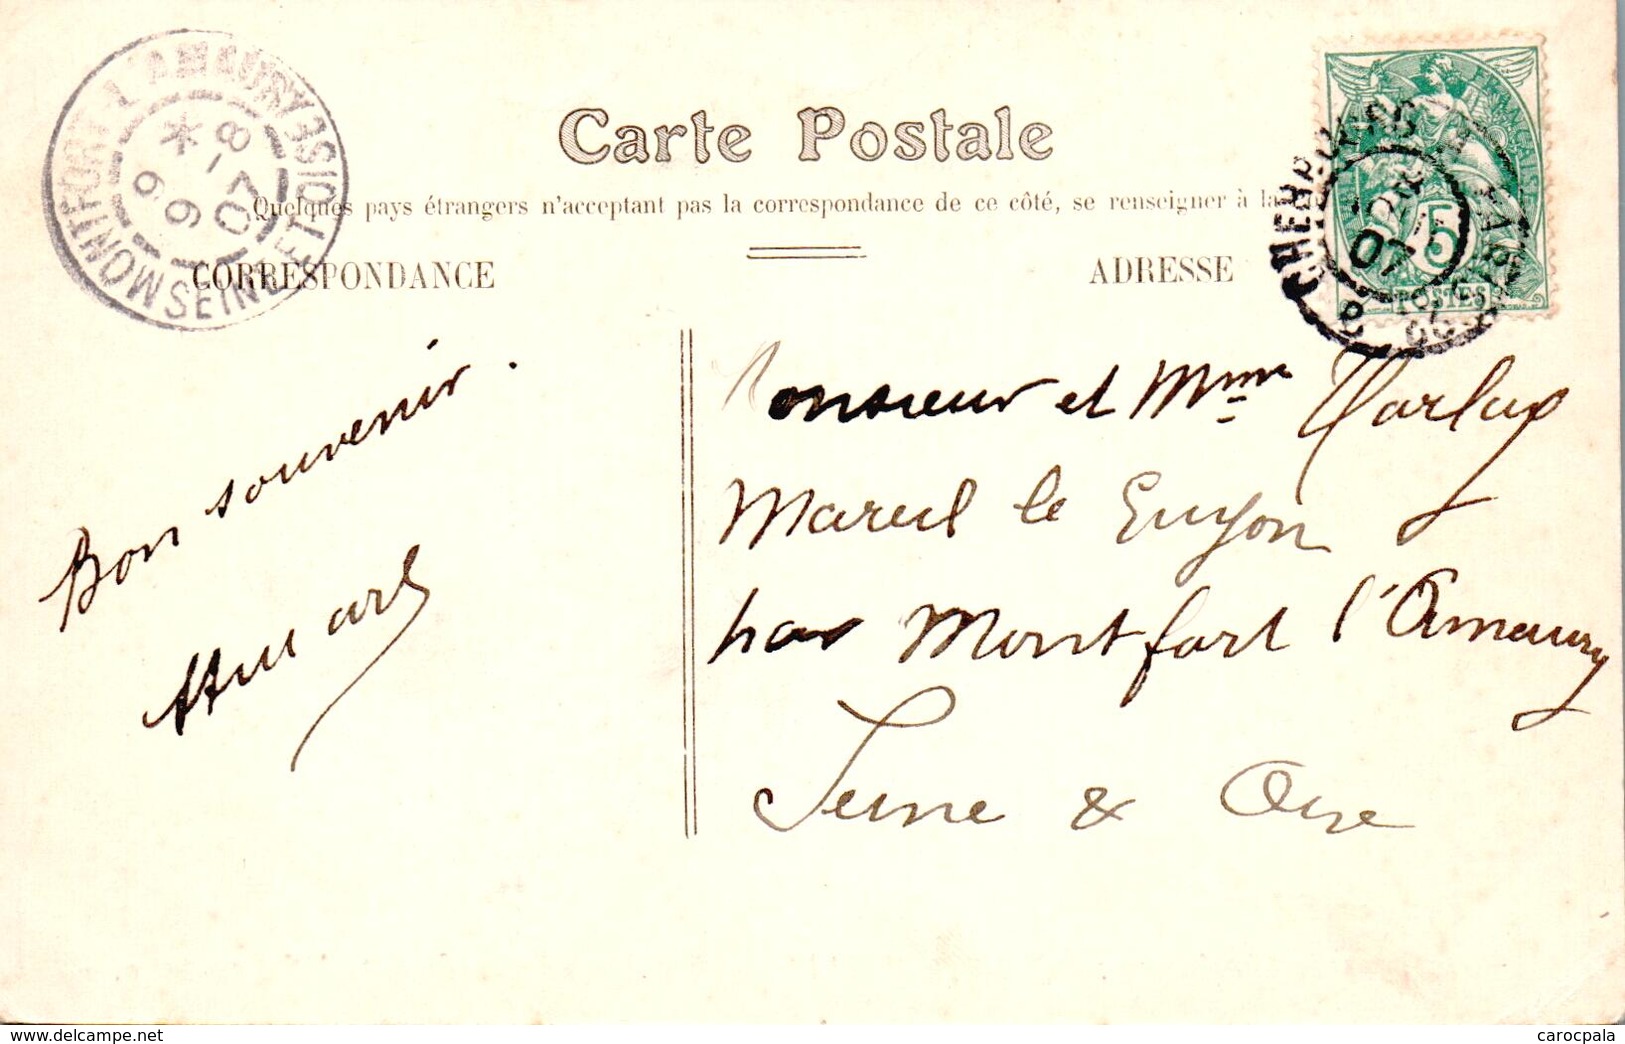 MONTFORT L'AMAURY SEINE ET OISE
8 - 9
07
Carte Postale
Quelques pays étrangers n'acceptent pas la correspondance de ce côté, se renseigner à la
CORRESPONDANCE
ADRESSE
CHERBOURG
07
5
POSTES
Bon souvenir.
Monsieur et Mme
Mareil le Guyon
par Montfort l'Amaury
Seine & Oise
www.delcampe.net
carocpala